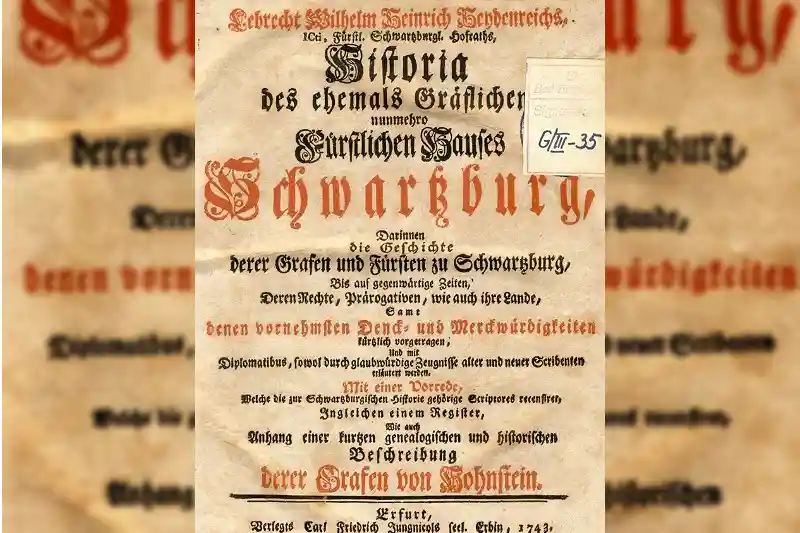 Lebrecht Wilhelm Heinrich Heydenreichs,
ICti, Fürstl. Schwartzburgl. Hofraths,
Historia
des ehemals Gräflichen
nunmehro
Fürstlichen Hauses
Schwartzburg,
Darinnen
die Geschichte
derer Grafen und Fürsten zu Schwartzburg,
Bis auf gegenwärtige Zeiten,
Deren Rechte, Prärogativen, wie auch ihre Lande,
Samt
denen vornehmsten Denck- und Merckwürdigkeiten
kürtzlich vorgetragen,
Und mit
Diplomatibus, sowol durch glaubwürdige Zeugnisse alter und neuer Scribenten
erläutert werden.
Mit einer Vorrede,
Welche die zur Schwartzburgischen Historie gehörige Scriptores recensiret,
Ingleichen einem Register,
Wie auch
Anhang einer kurtzen genealogischen und historischen
Beschreibung
derer Grafen von Hohnstein.
Erfurt,
Verlegts Carl Friedrich Jungnicols seel. Erbin, 1743.
G/III-35